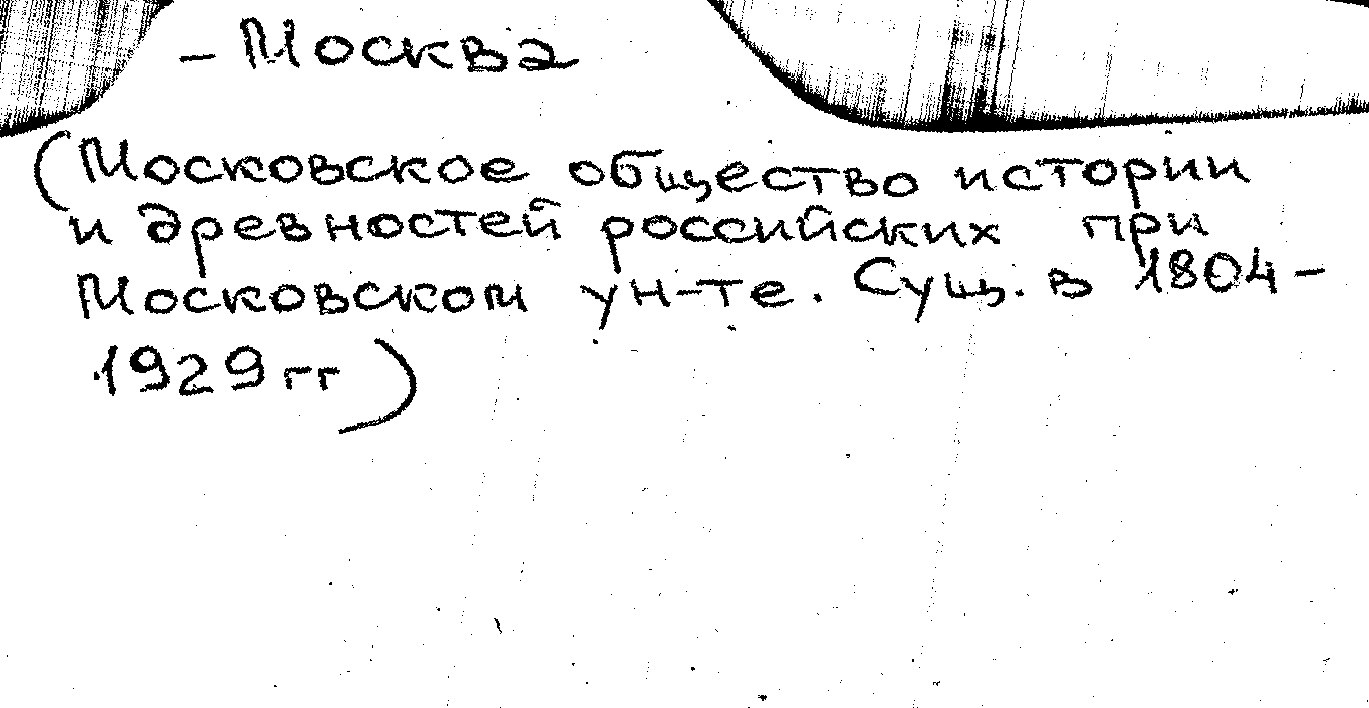 - Москва
(Московское общество истории
и древностей российских при
Московском ун-те. Сущ. в 1804-
1929 гг)